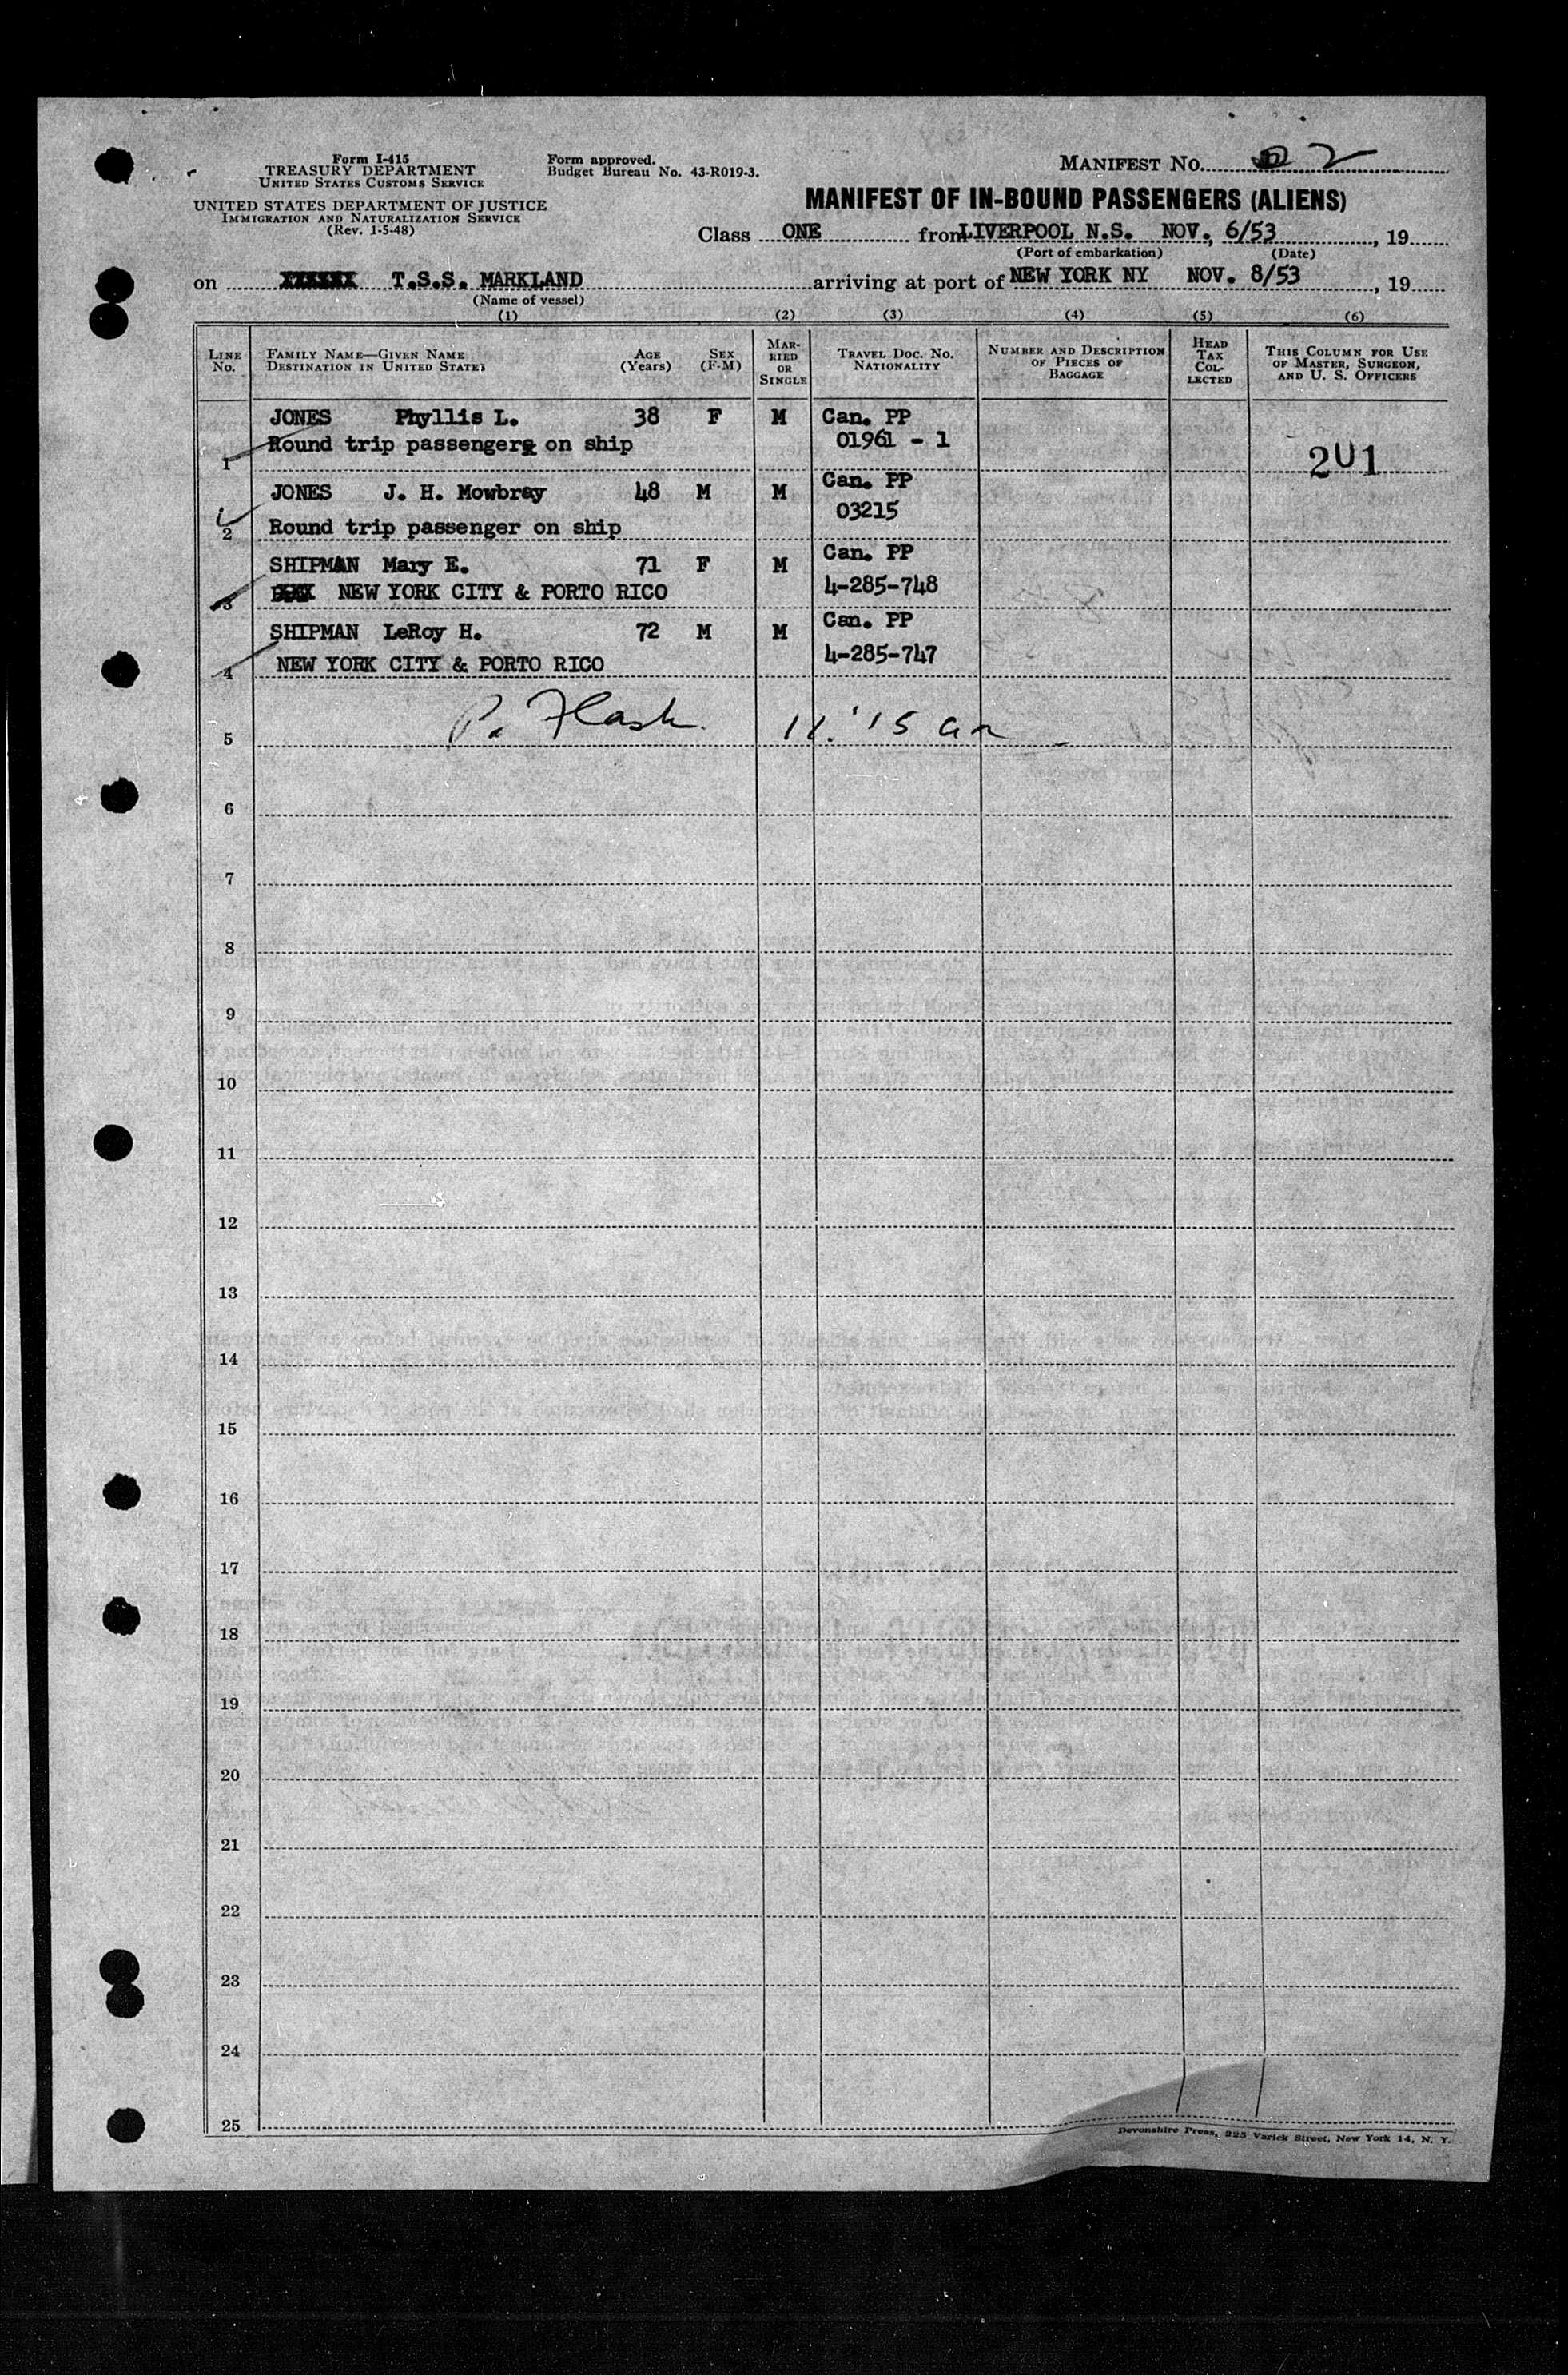 Form I-415
TREASURY DEPARTMENT
UNITED STATES CUSTOMS SERVICE
UNITED STATES DEPARTMENT OF JUSTICE
IMMIGRATION AND NATURALIZATION SERVICE
(Rev. 1-5-48)
Form approved.
Budget Bureau No. 43-R019-3.
MANIFEST No. 2
MANIFEST OF IN-BOUND PASSENGERS (ALIENS)
Class ONE from LIVERPOOL N.S. NOV., 6/53, 19
(Port of embarkation) (Date)
on XXXXXX T.S.S. MARKLAND arriving at port of NEW YORK NY NOV. 8/53, 19
(Name of vessel)
(1) (2) (3) (4) (5) (6)
LINE No.
FAMILY NAME—GIVEN NAME
DESTINATION IN UNITED STATES
AGE (Years)
SEX (F-M)
MARRIED OR SINGLE
TRAVEL DOC. NO. NATIONALITY
NUMBER AND DESCRIPTION OF PIECES OF BAGGAGE
HEAD TAX COLLECTED
THIS COLUMN FOR USE OF MASTER, SURGEON, AND U. S. OFFICERS
JONES Phyllis L. 38 F M Can. PP
1 Round trip passengers on ship 01961 - 1 201
JONES J. H. Mowbray 48 M M Can. PP
2 Round trip passenger on ship 03215
SHIPMAN Mary E. 71 F M Can. PP
3 NEW YORK CITY & PORTO RICO 4-285-748
SHIPMAN LeRoy H. 72 M M Can. PP
4 NEW YORK CITY & PORTO RICO 4-285-747
5 P. Flash 11:15 am
6
7
8
9
10
11
12
13
14
15
16
17
18
19
20
21
22
23
24
25
Devonshire Press, 225 Varick Street, New York 14, N. Y.